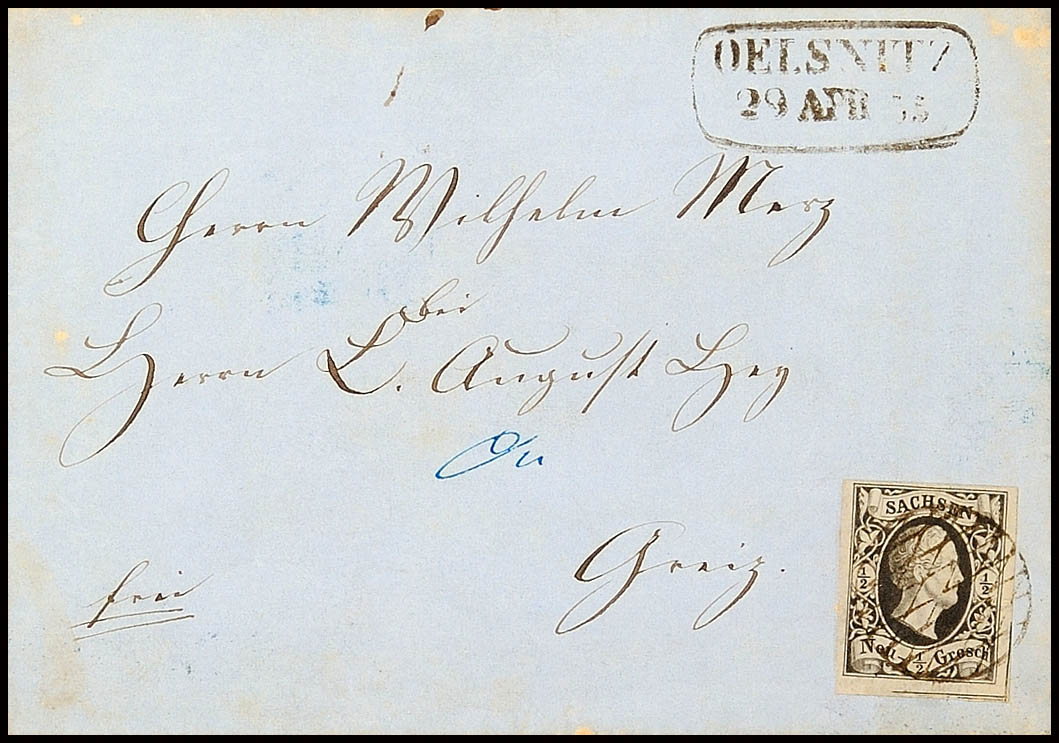 OELSNITZ
29 APR 55
Herrn Wilhelm Merz
bei
Herrn L. August Hey
Greiz.
frei
SACHSEN
1/2 1/2
Neu- 1/2 Grosch